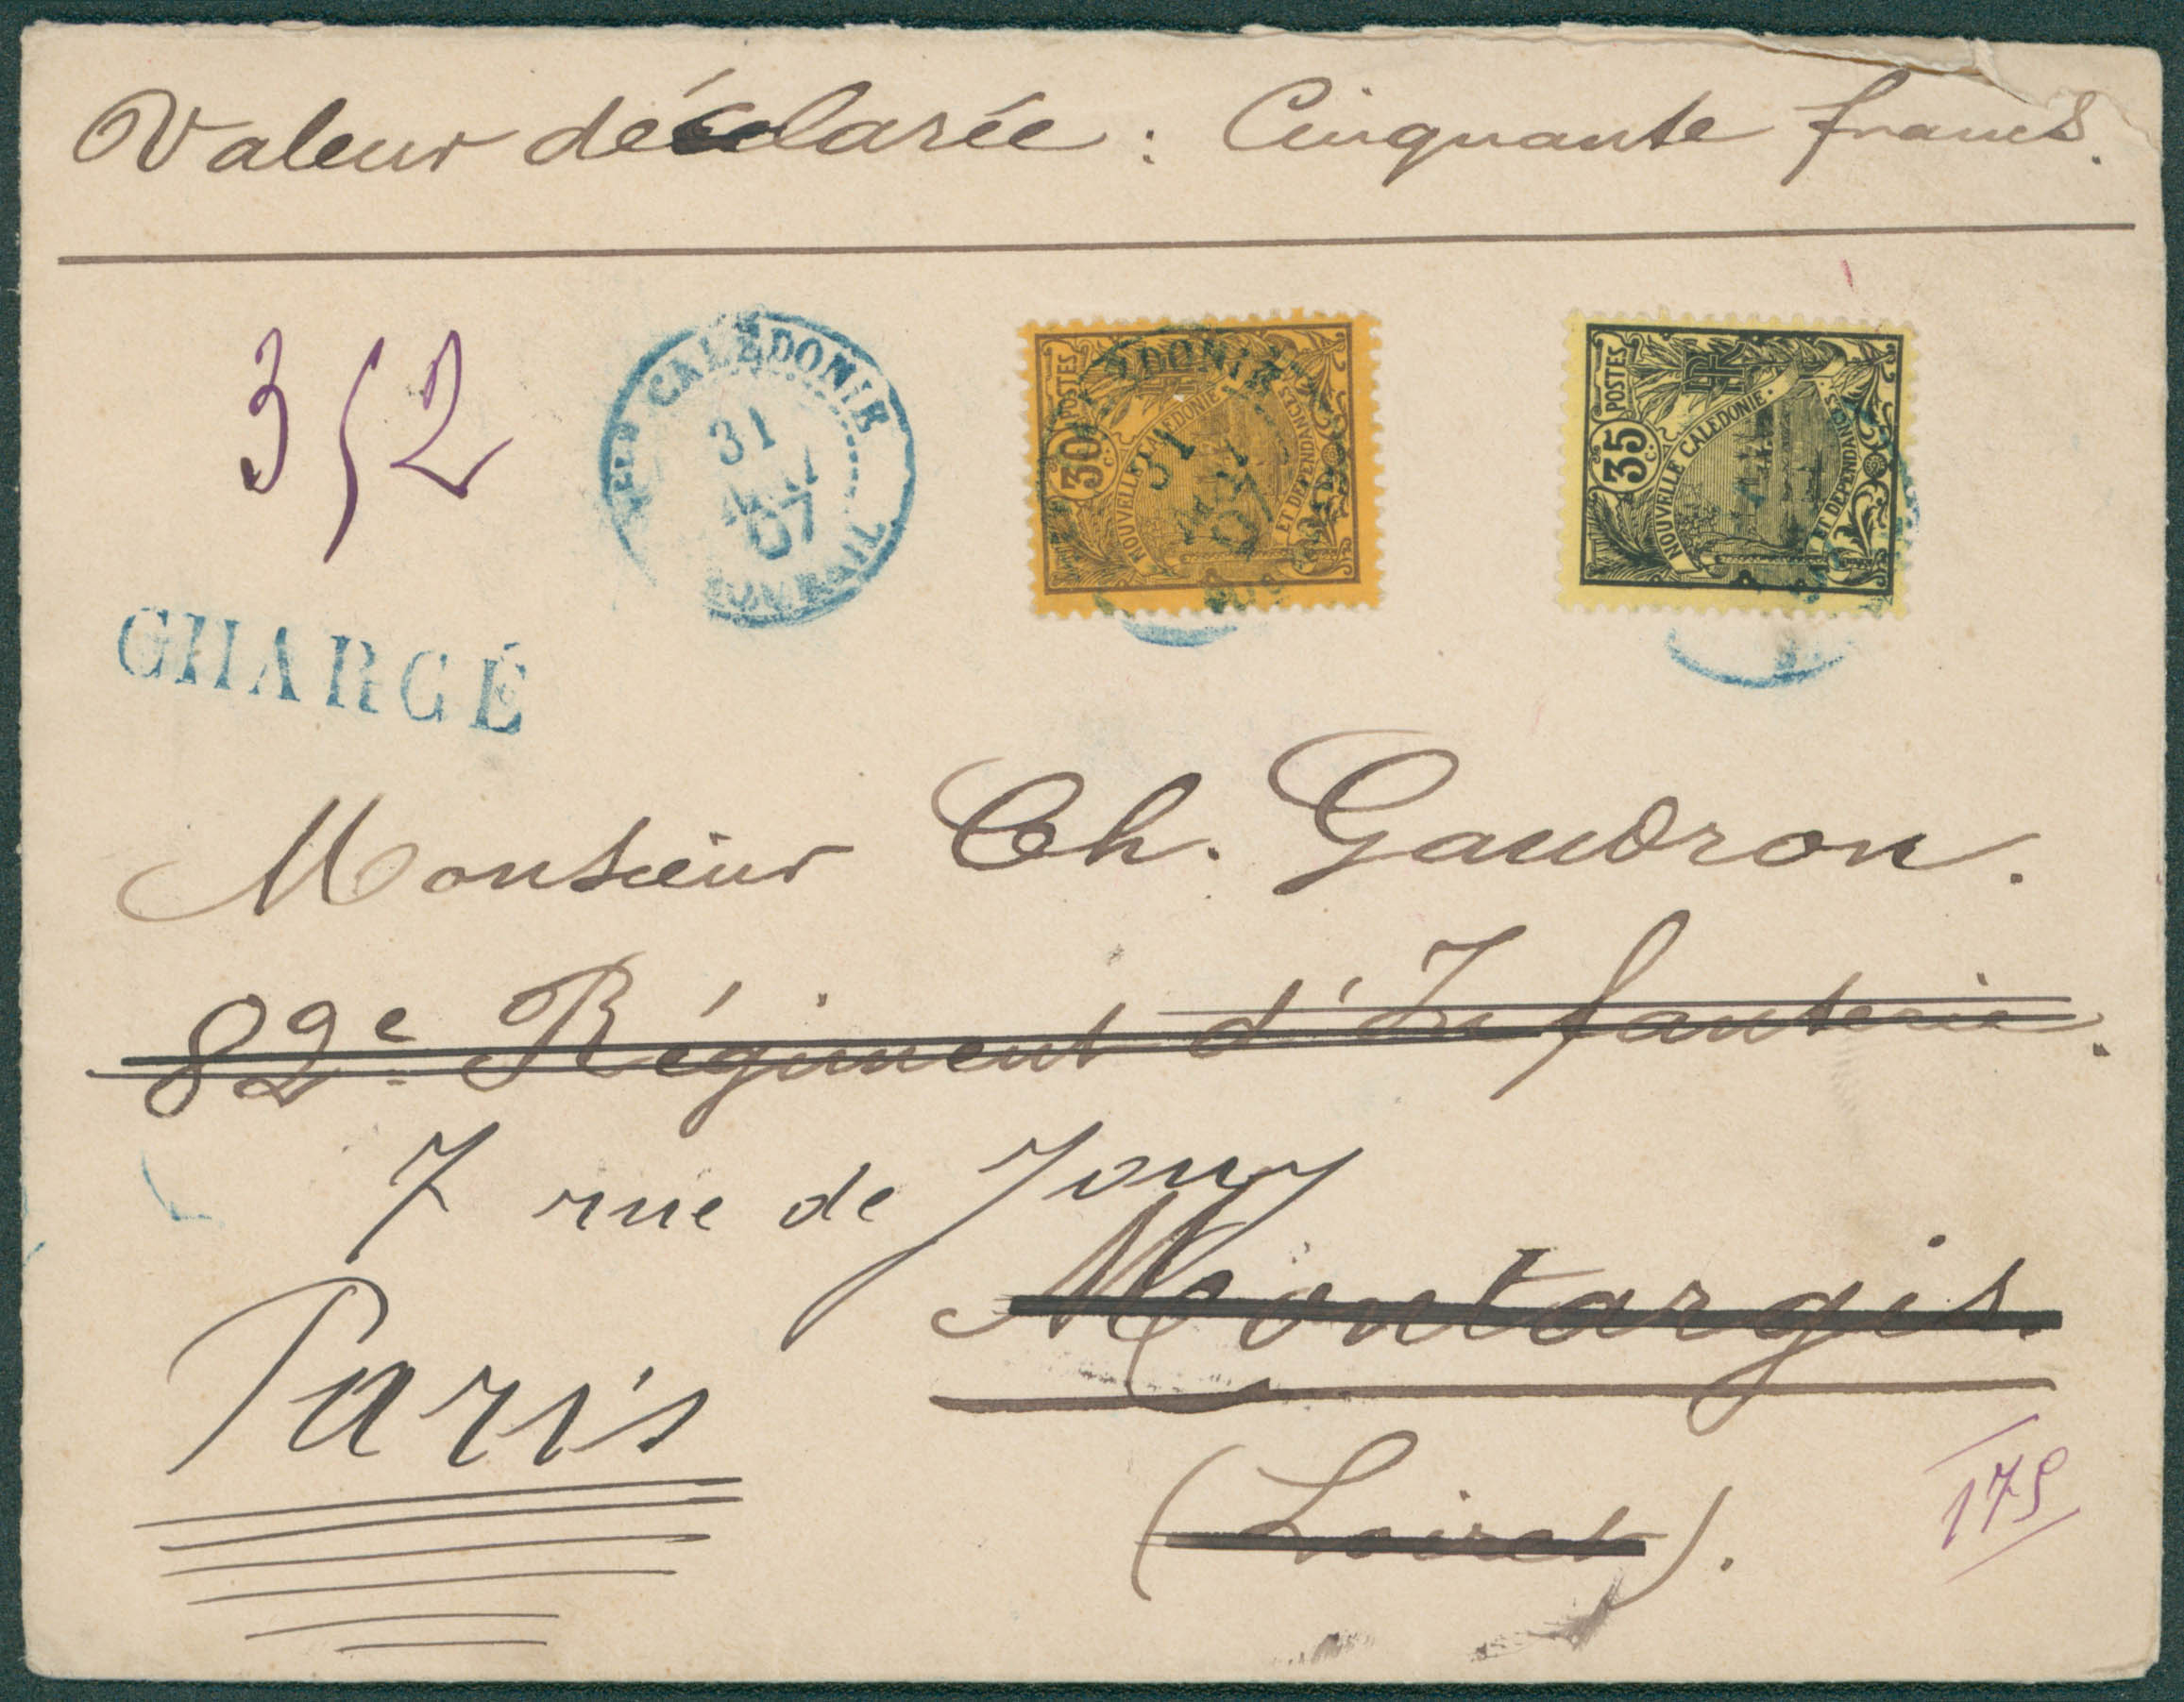 Valeur déclarée : Cinquante francs.
352
CALÉDONIE
31
07
BOURAIL
POSTES
30 c.
NOUVELLE CALÉDONIE
ET DÉPENDANCES
31
07
POSTES
RF
35 c.
NOUVELLE CALÉDONIE.
ET DÉPENDANCES.
CHARGÉ
Monsieur Ch. Gaudron.
82e Régiment d'Infanterie.
7 rue de Jouy
Montargis.
Paris
(Loiret).
175